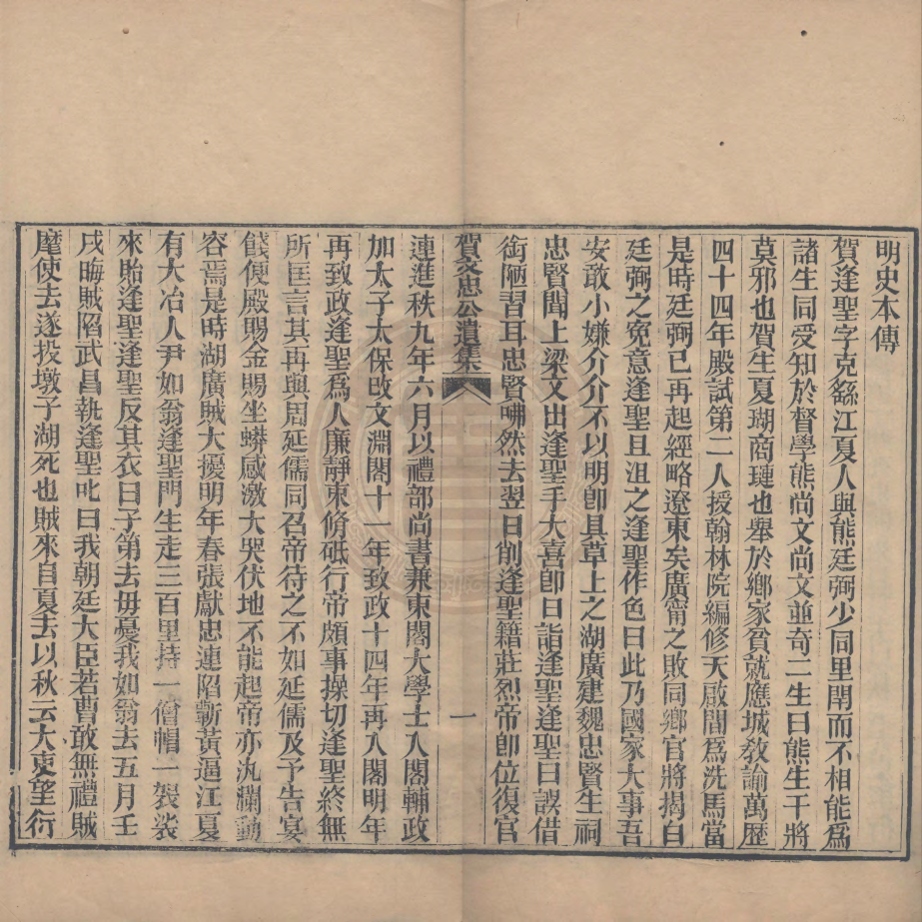 明史本傳
賀逢聖字克繇江夏人與熊廷弼少同里閈而不相能爲
諸生同受知於督學熊尚文尚文並奇二生曰熊生干將
莫邪也賀生夏瑚商璉也舉於鄉家貧就應城教諭萬歷
四十四年殿試第二人授翰林院編修天啟間爲洗馬當
是時廷弼已再起經略遼東矣廣甯之敗同鄉官將揭白
廷弼之冤意逢聖且沮之逢聖作色曰此乃國家大事吾
安敢小嫌介介不以明卽具草上之湖廣建魏忠賢生祠
忠賢聞上梁文出逢聖手大喜卽日詣逢聖逢聖曰誤借
銜陋習耳忠賢咈然去翌日削逢聖籍莊烈帝卽位復官
賀文忠公遺集
一
連進秩九年六月以禮部尚書兼東閣大學士入閣輔政
加太子太保改文淵閣十一年致政十四年再入閣明年
再致政逢聖爲人廉靜束脩砥行帝頗事操切逢聖終無
所匡言其再與周延儒同召帝待之不如延儒及予告宴
餞便殿賜金賜坐蟒感激大哭伏地不能起帝亦汍瀾動
容焉是時湖廣賊大擾明年春張獻忠連陷蘄黃逼江夏
有大冶人尹如翁逢聖門生走三百里持一僧帽一袈裟
來貽逢聖逢聖反其衣曰子第去毋憂我如翁去五月壬
戌晦賊陷武昌執逢聖叱曰我朝廷大臣若曹敢無禮賊
麾使去遂投墩子湖死也賊來自夏去以秋云大吏望衍